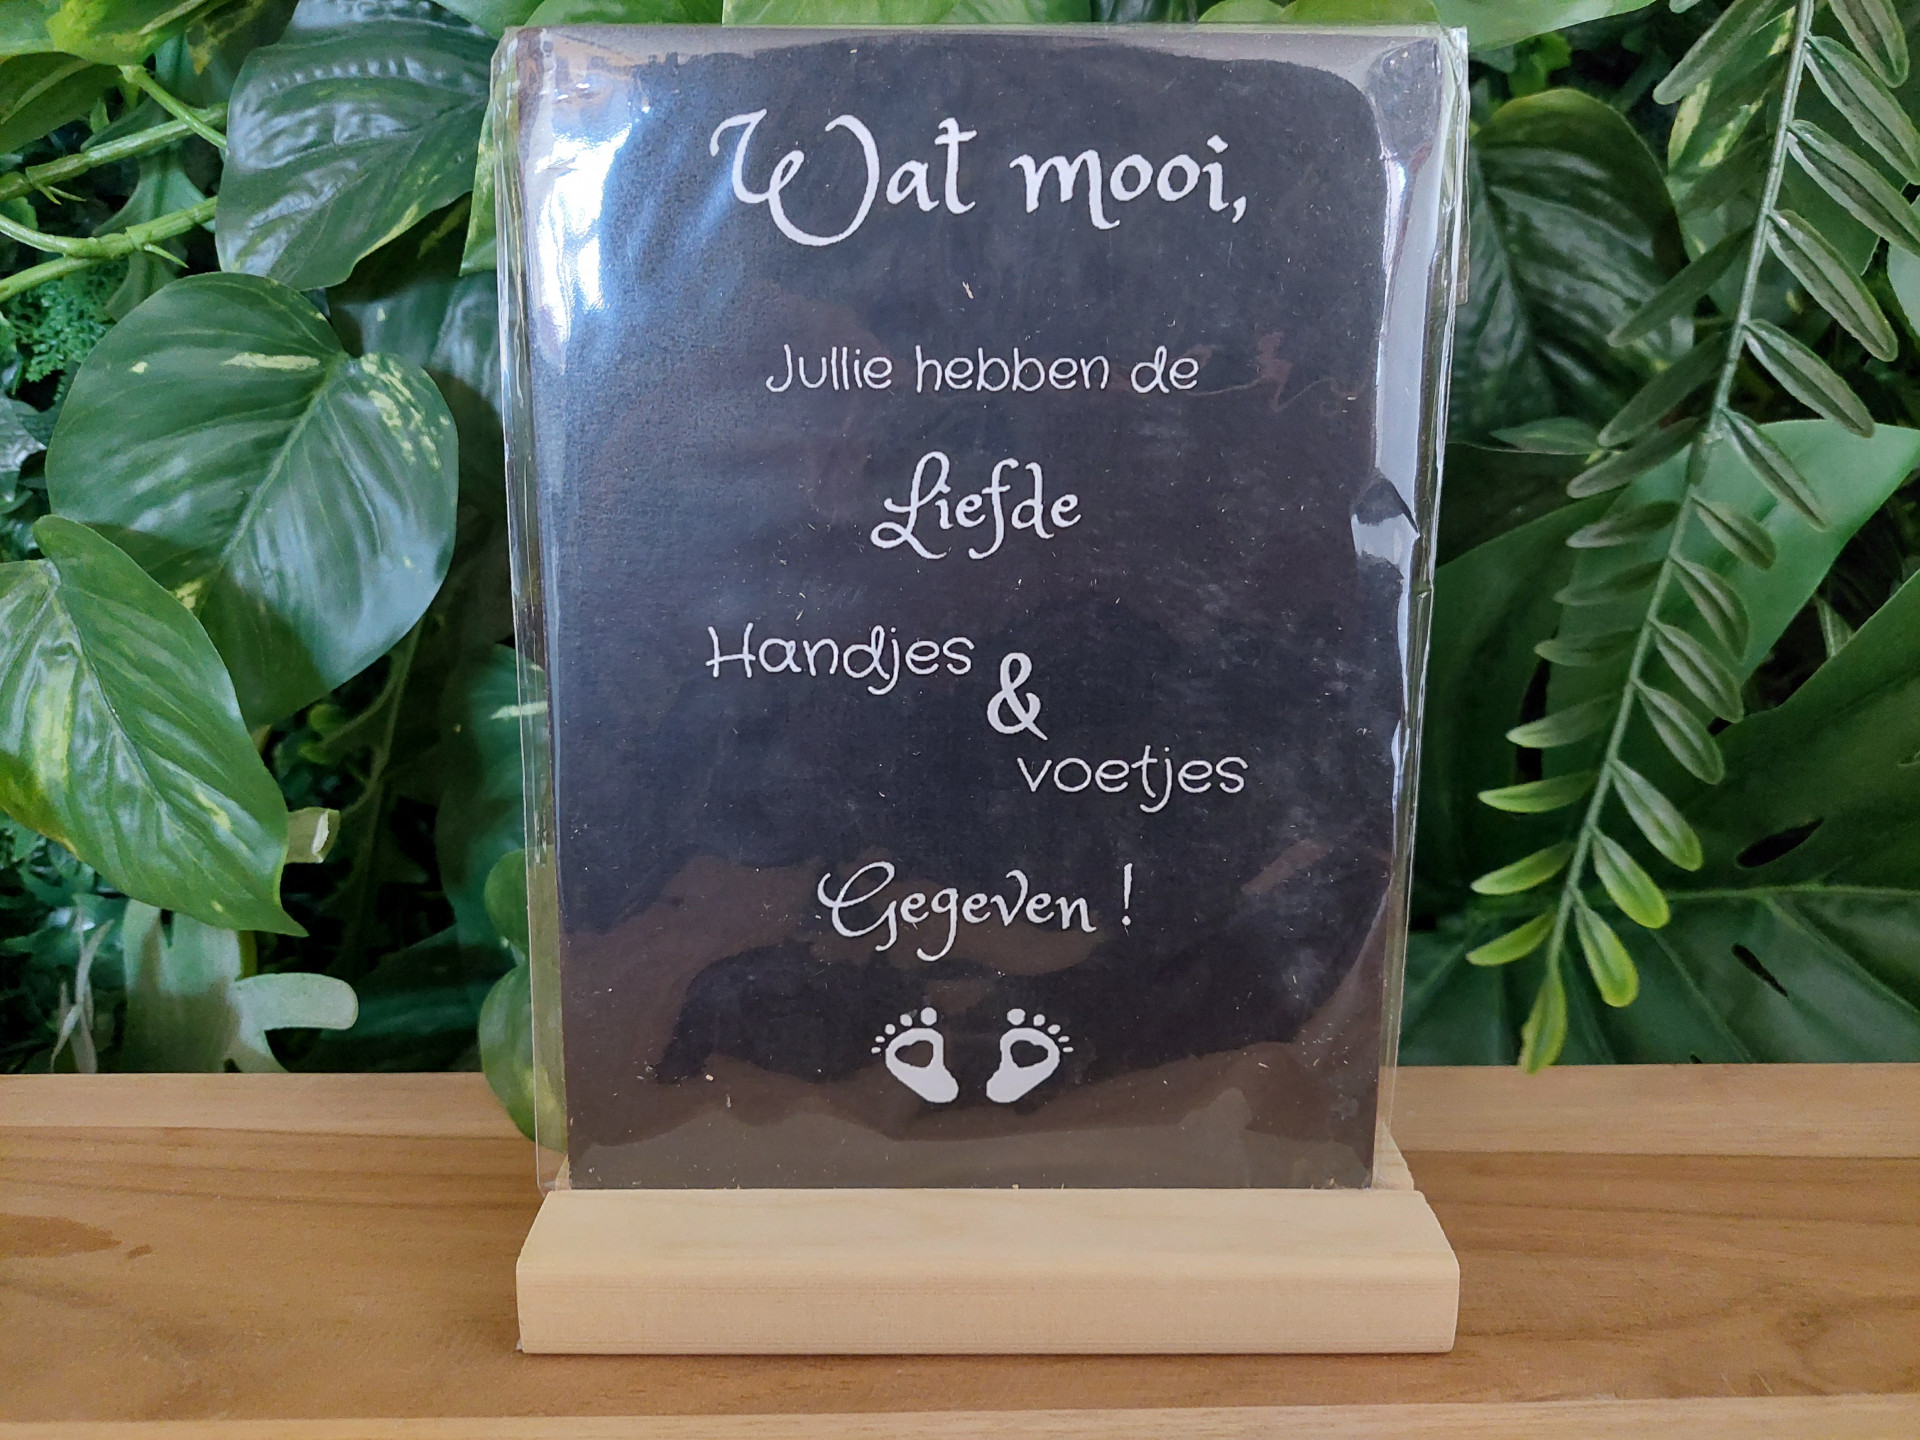 Wat mooi,
Jullie hebben de
Liefde
Handjes
&
voetjes
Gegeven !